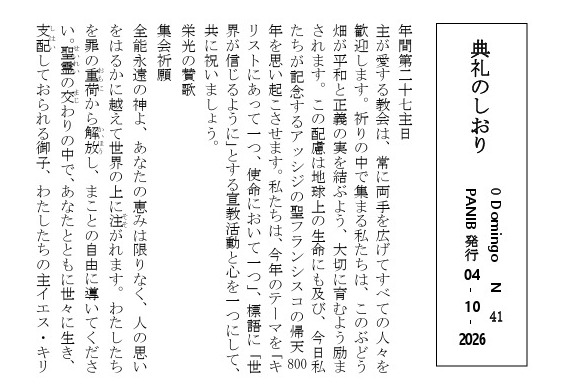 典礼のしおり
0 Domingo N 41
PANIB 発行 04 - 10 - 2026
年間第二十七主日
主が愛する教会は、常に両手を広げてすべての人々を
歓迎します。祈りの中で集まる私たちは、このぶどう
畑が平和と正義の実を結ぶよう、大切に育むよう励ま
されます。この配慮は地球上の生命にも及び、今日私
たちが記念するアッシジの聖フランシスコの帰天 800
年を思い起こさせます。私たちは、今年のテーマを「キ
リストにあって一つ、使命において一つ」、標語に「世
界が信じるように」とする宣教活動と心を一つにして、
共に祝いましょう。
栄光の賛歌
集会祈願
全能永遠の神よ、あなたの恵みは限りなく、人の思い
をはるかに越えて世界の上に注がれます。わたしたち
を罪の重荷から解放し、まことの自由に導いてくださ
い。聖霊の交わりの中で、あなたとともに世々に生き、
支配しておられる御子、わたしたちの主イエス・キリ